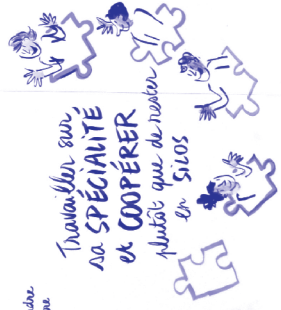 Travailler sur
sa SPÉCIALITÉ
et COOPÉRER
plutôt que de rester
en SILOS